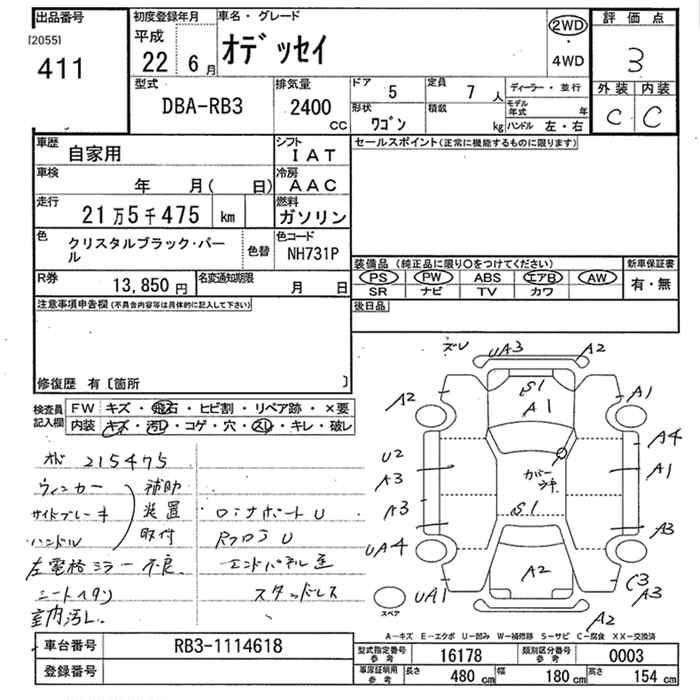 出品番号
[2055]
411
初度登録年月
平成
22 6月
車名・グレード
オデッセイ
2WD
・
4WD
評価点
3
外装 内装
C C
型式
DBA-RB3
排気量
2400
CC
ドア 5
定員 7人
形状 ワゴン
積載 kg
ディーラー・並行
モデル年式 年
ハンドル 左・右
車歴 自家用
シフト IAT
車検 年 月( 日)
冷房 AAC
走行 21万5千475 km
燃料 ガソリン
色 クリスタルブラック・パール
色替
色コード NH731P
R券 13,850円
名変通知期限 月 日
セールスポイント(正常に機能するものに限ります)
装備品(純正品に限り○をつけてください)
PS PW ABS エアB AW
SR ナビ TV カワ
新車保証書
有・無
後日品
注意事項申告欄(不具合内容等は具体的に記入して下さい)
修復歴 有〔箇所 〕
検査員記入欄
FW キズ・飛石・ヒビ割・リペア跡・×要
内装 キズ・汚レ・コゲ・穴・スレ・キレ・破レ
215475
ウィンカー
サイドブレーキ
ハンドル
補助
装置
取付
左電格ミラー不良
シートヘタリ
室内汚レ
ロアサポートU
RフロアU
エンドパネル歪
スタッドレス
ズレ
UA3
A2
S1
A1
A2
A1
U2
A3
A4
A1
カバー
キ
A3
S1
A3
UA4
UA1
A2
C3
A3
A2
スペア
A-キズ E-エクボ U-凹み W-補修跡 S-サビ C-腐食 XX-交換済
車台番号 RB3-1114618
登録番号
型式指定番号 参考 16178
類別区分番号 参考 0003
車庫証明用 参考
長さ 480 cm
幅 180 cm
高さ 154 cm